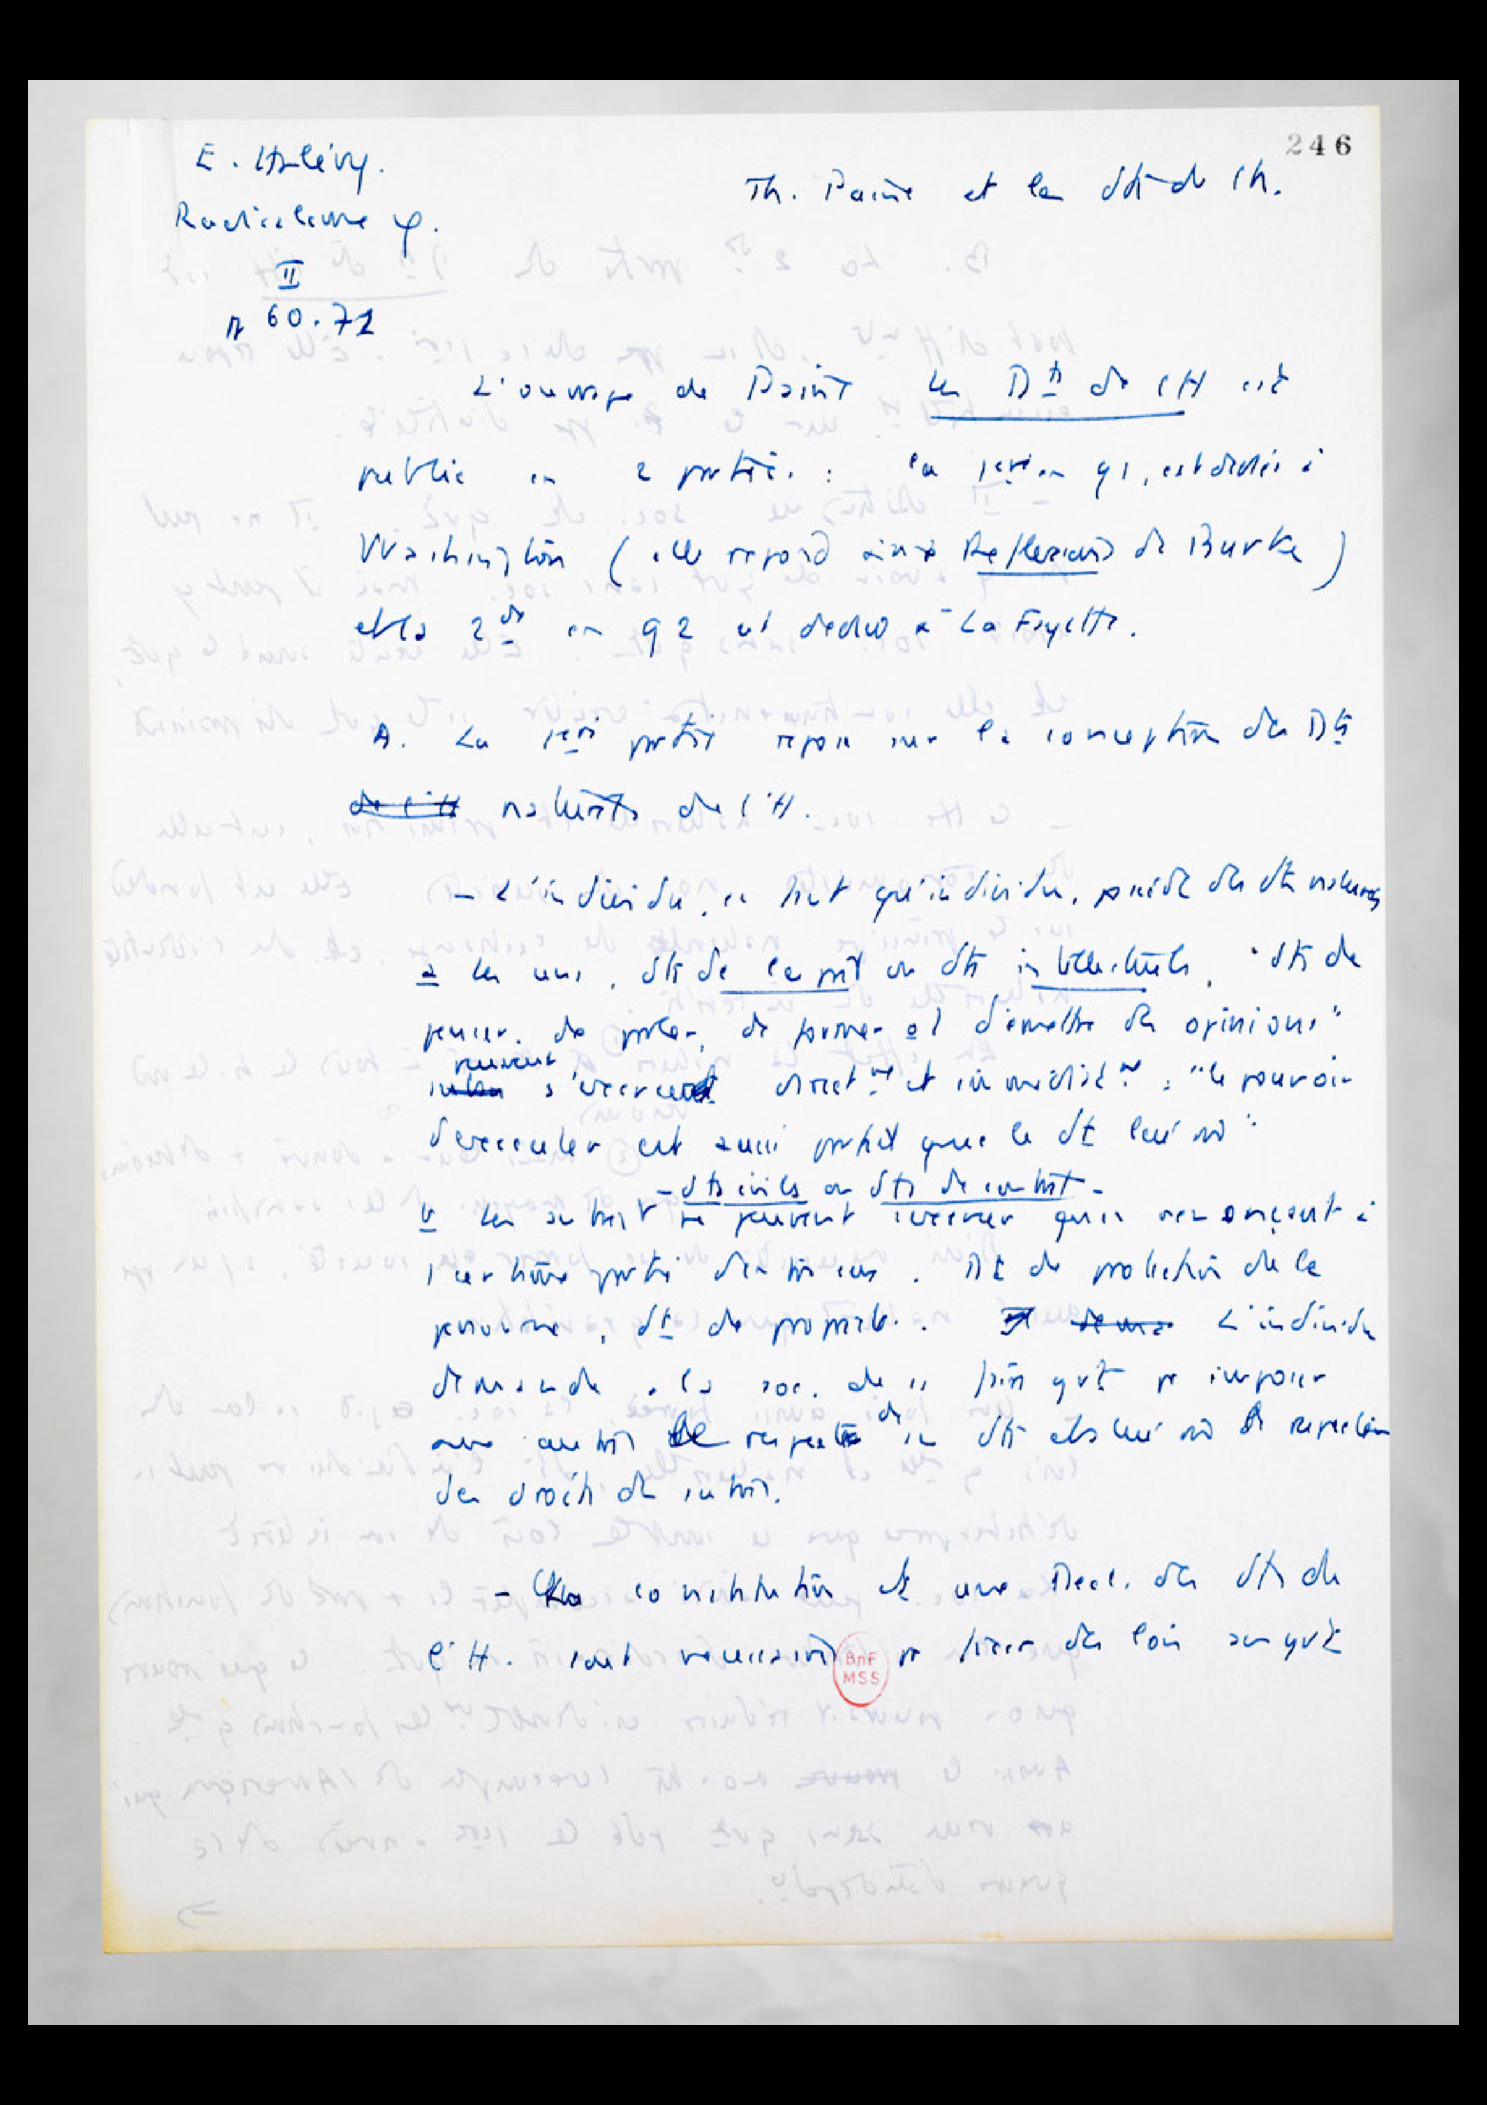 246
E. Halévy.
Th. Paine et les dts de l'h.
Radicalisme φ.
II
p 60.71
L'ouvrage de Paine les Dts de l'H est
publié en 2 parties : la 1ère en 91, est dédiée à
Washington (elle répond aux Reflexions de Burke)
et la 2de en 92 est dédiée à La Fayette.
A. La 1ère partie repose sur la conception des Dts
de l'H naturels de l'H.
- L'individu, en tant qu'individu, possède des dts naturels
a les uns, dts de l'esprit ou dts intellectuels, "dts de
penser, de parler, de former et d'émettre des opinions"
peuvent
s'exercer directmt et immédiatmt : "le pouvoir
d'exécuter est aussi parfait que le dt lui m̄"
- dts civils ou dts de contrat -
b les autres ne peuvent s'exercer qu'en renonçant à
1 certaine partie d'entre eux. Dt de protection de la
personne, dt de propriété. L'individu
demande à la soc. de se faire gvt pr imposer
aux autres le respect de ses dts et lui m̄ de respecter
les droits des autres.
- La constitution et une Decl. des dts de
l'H. sont nécessaires pr fixer des lois au gvt
BnF
MSS